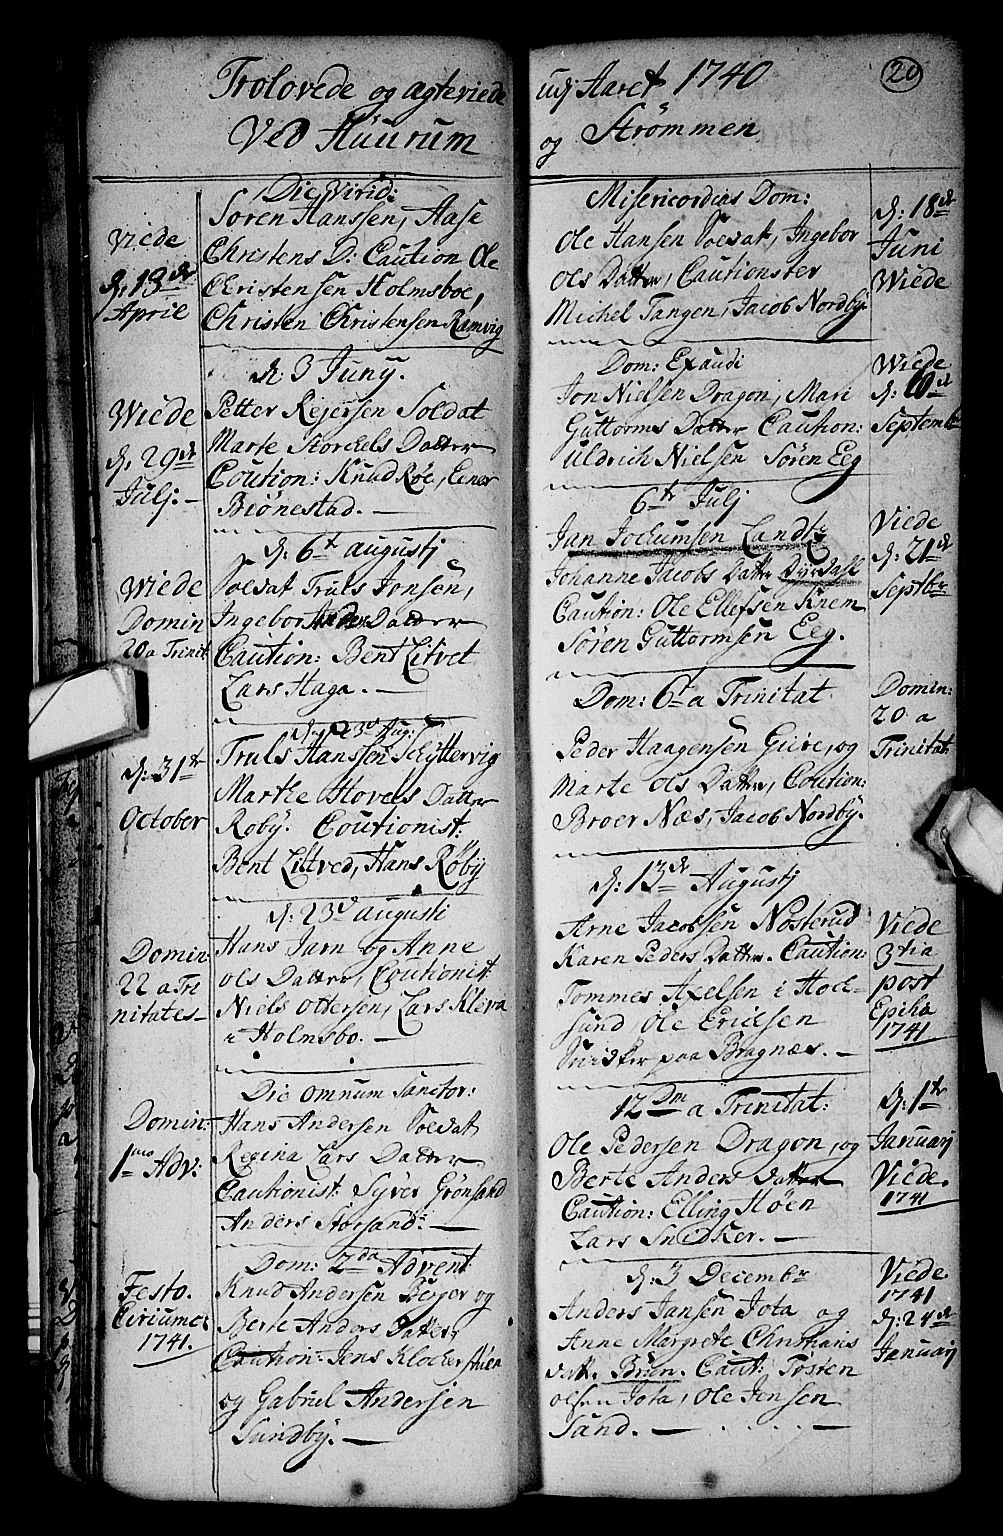 Trolovede og ægteviede
Ved Huurum
Die Virid:
Viede
d. 13de
April
Søren Hanssen, Aase
Christens D: Caution Ole
Christensen Holmsboe,
Christen Christensen Ramvig
d. 3 Junij.
Wiede
d. 29de
Julj.
Petter Rejersen Soldat
Marte Storckels Datter
Coution: Knud Røe, Einer
Biønestad.
d. 6te augustj
Wiede
Domin
20 a Trinit
Soldat Truls Jonsen,
Ingebor Datter
Caution: Bent Litvet
Lars Haga.
d. 23de Aug:
d. 31te
October
Truls Hanssen Schyttervig
Marthe Hovels Datter
Røby. Coutionist:
Bent Littved, Hans Røby
d. 23de augusti
Domin
22 a Tri
nitates
Hans Jarn og Anne
ols Datter, Coutionist
Niels ottersen, Lars Kleva
i Holmsbo.
Die omnium Sanctor:
Domin:
1mo Adv:
Hans Andersen Soldat
Regina Lars Datter
Cautionist Syver Grønsand
Anders Storsand:
Dom: 2da Advent
Festo.
Circumci
1741.
Knud Andersen Berger og
Berte Anders Datter,
Caution: Jens Klocker
og Gabriel Andersen
Sundby.
udj Aaret 1740
20
og Strømmen
Misericordias Dom:
Ole Hansen Soldat, Ingebor
Ols Datter, Cautionster
Michel Tangen, Jacob Nordby.
d: 18de
Juni
Wiede
Dom: Exaudi
Jon Nielsen Dragon, Mari
Guttorms Datter Caution:
Uldrich Nielsen Søren Eeg
Wiede
d:
Septemb
6te Julj
Jan Jochumsen Landt
Johanne Jacobs Datter Dyrdahl
Caution: Ole Ellefsen Knem
Søren Guttormsen Eeg.
Viede
d. 21de
Septbr
Dom: 6ta Trinitat
Peder Haagensen Guire, og
Marte Ols Datter, Coution:
Broer Næs, Jacob Nordby.
Domin:
20 a
Trinitat
d: 13de Augustj
Arne Jacobsen Nosterud
Karen Peders Datter. Caution:
Tommes Axelsen i Hock-
sund Ole Ericksen
Snidker paa Bragnæs.
Viede
3tia
post
Epiha
1741
12 Dm a Trinitat:
Ole Pedersen Dragon, og
Berte Anders Datter
Caution: Elling Høen
Lars Snidker.
d: 1te
Januarj
Viede.
1741
d: 3 Decembr
Anders Jansen Jota og
Anne Margrete Christians
datt. Brun. Caut: Tosten
olsen Jota, Ole Jensen
Sand.
Viede
1741
d: 24de
Januarj